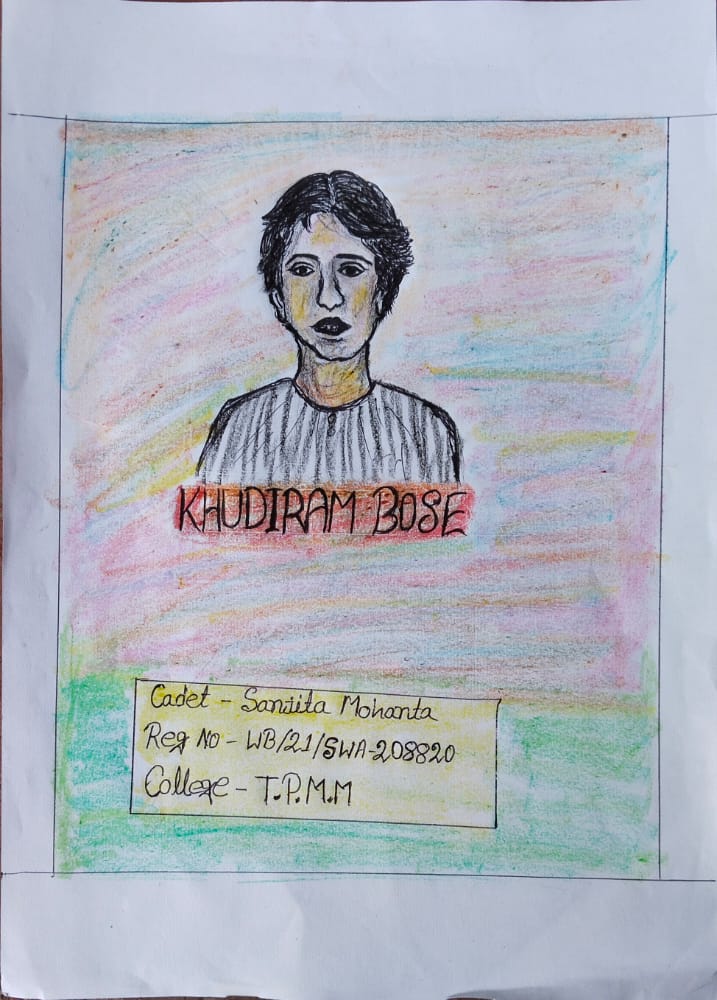 KHUDIRAM BOSE
Cadet - Sanjita Mohanta
Reg No - WB/21/SWA-208820
College - T.P.M.M